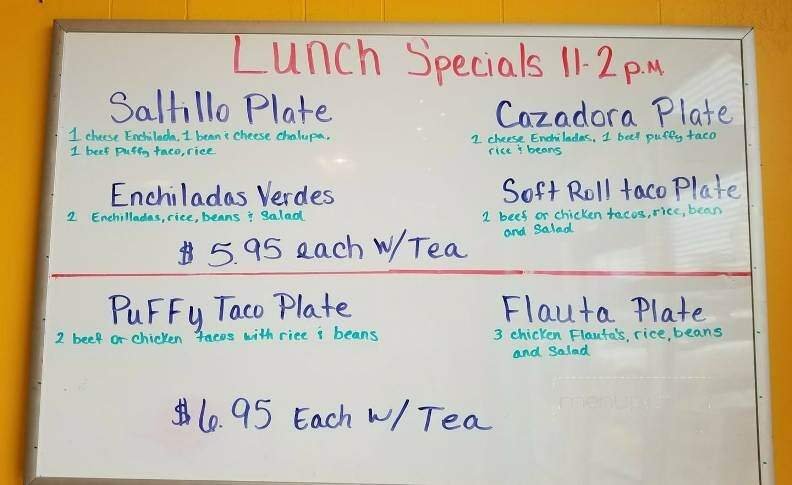 Lunch Specials 11-2 p.m
Saltillo Plate
1 cheese Enchilada, 1 bean & cheese chalupa,
1 beef Puffy taco, rice
Cazadora Plate
2 cheese Enchiladas, 1 beef puffy taco
rice & beans
Enchiladas Verdes
2 Enchilladas, rice, beans & Salad
Soft Roll taco Plate
2 beef or chicken tacos, rice, bean
and Salad
$ 5.95 each w/Tea
Puffy Taco Plate
2 beef or chicken tacos with rice & beans
Flauta Plate
3 chicken Flauta's, rice, beans
and Salad
$6.95 Each w/ Tea